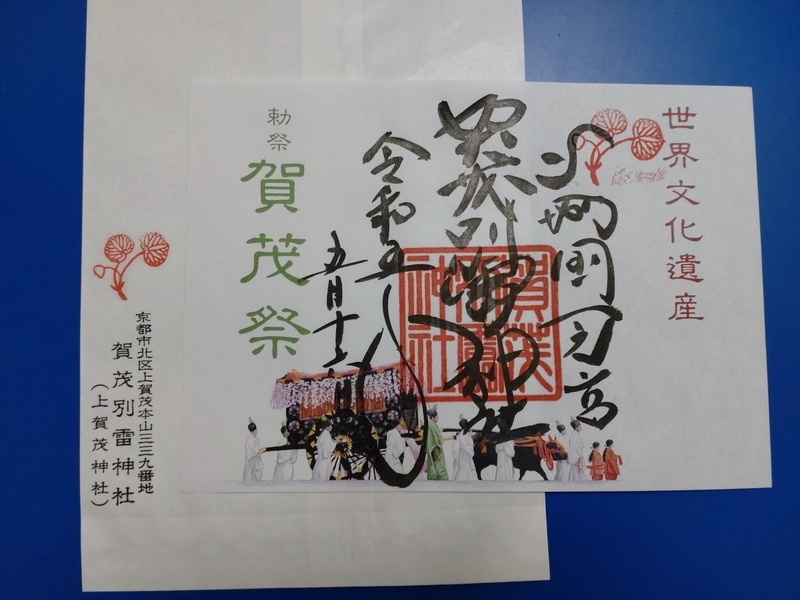 世界文化遺産
賀茂別雷神社
賀茂別雷神社
令和五年
勅祭
賀茂祭
京都市北区上賀茂本山三三九番地
賀茂別雷神社
(上賀茂神社)